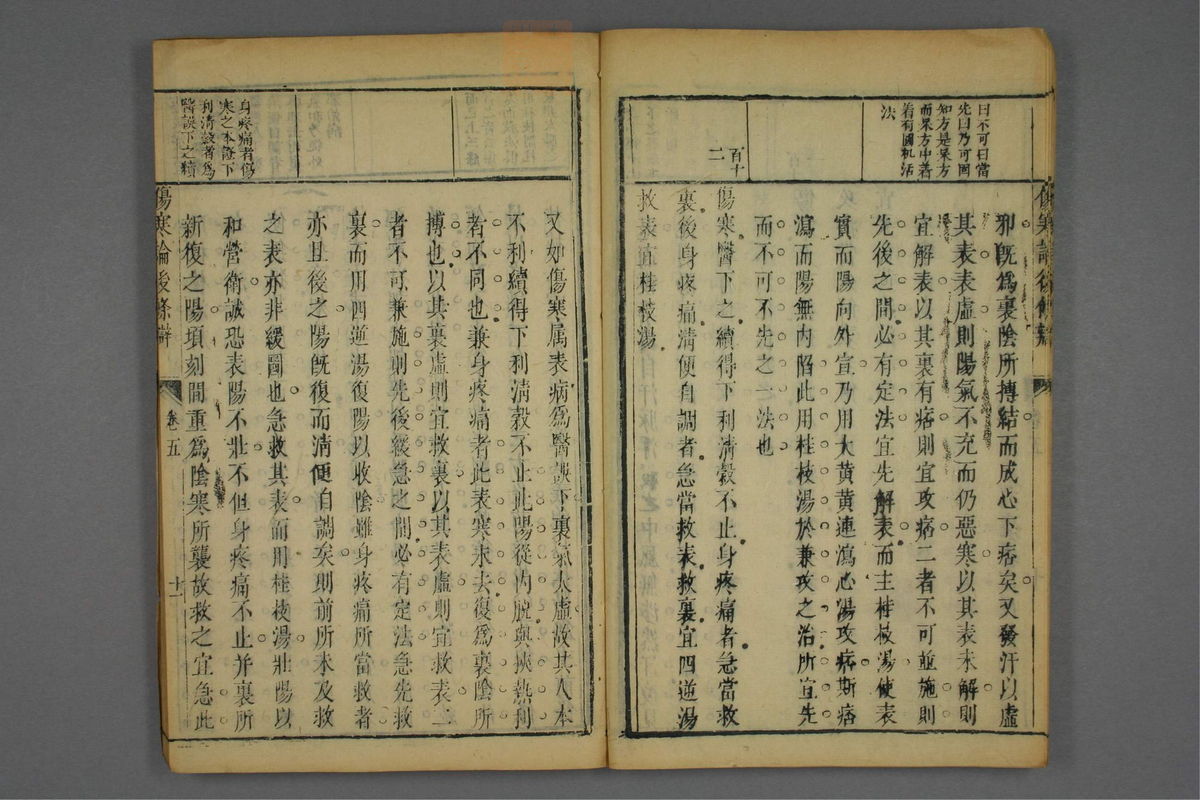 曰不可曰當
先曰乃可固
知方是呆方
而呆方中著
著有圓机活
法
邪旣爲裏陰所搏結而成心下痞矣又發汗以虛
其表表虛則陽氣不充而仍惡寒以其表未解則
宜解表以其裏有痞則宜攻痞二者不可並施則
先後之間必有定法宜先解表而主桂枝湯使表
實而陽向外宣乃用大黃黃連瀉心湯攻痞斯痞
瀉而陽無內陷此用桂枝湯於兼攻之治所宜先
而不可不先之一法也
百十
二
傷寒醫下之續得下利淸穀不止身疼痛者急當救
裏後身疼痛淸便自調者急當救表救裏宜四逆湯
救表宜桂枝湯
身疼痛者傷
寒之本證下
利淸穀者爲
醫誤下之續
又如傷寒属表病爲醫誤下裏氣大虛故其人本
不利續得下利淸穀不止此陽從內脫與挾熱利
者不同也兼身疼痛者此表寒未去復爲裏陰所
搏也以其裏虛則宜救裏以其表虛則宜救表二
者不可兼施則先後緩急之間必有定法急先救
裏而用四逆湯復陽以收陰雖身疼痛所當救者
亦且後之陽旣復而淸便自調矣則前所未及救
之表亦非緩圖也急救其表而用桂枝湯壯陽以
和營衛誠恐表陽不壯不但身疼痛不止并裏所
新復之陽頃刻間重爲陰寒所襲故救之宜急此
傷寒論後條辯
卷五
十一